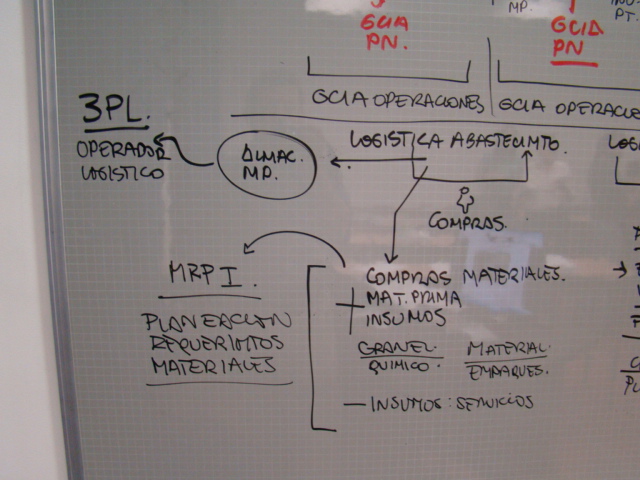 MP.
PT.
GCIA
PN.
GCIA
PN
GCIA OPERACIONES
GCIA OPERACIO
3PL.
OPERADOR
LOGISTICO
ALMAC.
MP.
LOGISTICA ABASTECIMTO.
COMPRAS.
MRP I.
PLANEACION
REQUERIMTOS
MATERIALES
COMPRAS MATERIALES.
MAT. PRIMA
INSUMOS
GRANEL.
QUIMICO.
MATERIAL.
EMPAQUES.
— INSUMOS: SERVICIOS